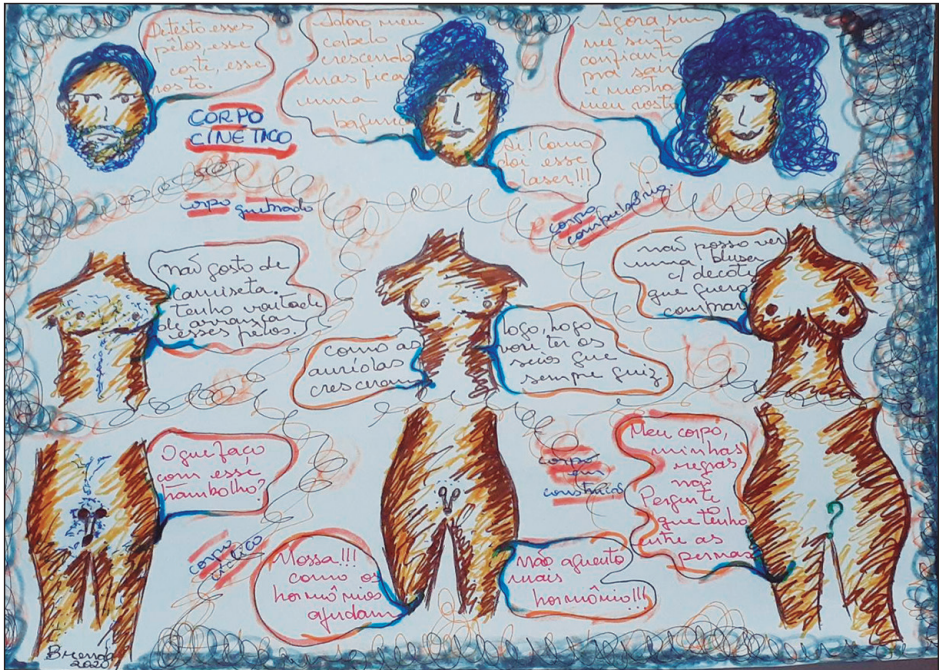 Detesto esses
pêlos, esse
corte, esse
rosto.
Adoro meu
cabelo
crescendo
mas fica
uma
Agora sim
me sinto
confiante
pra sair
e mostrar
meu rosto
CORPO
CINÉTICO
Ai! Como
doi esse
laser!!!
corpo queimado
corpo
compulsório
não gosto de
camiseta.
tenho vontade
de arrancar
esses pelos.
como as
auríolas
cresceram
logo, logo
vou ter os
seio que
sempre quiz
não posso ver
uma blusa
c/ decote
que quero
comprar
O que faço
com esse
trambolho?
corpo
em
construção
Meu corpo,
minhas
regras
não
Pergunte
que tenho
entre as
pernas
corpo
Nossa!!!
como os
hormônios
ajudam
Não aguento
mais
hormônio!!!
Brenda
2020